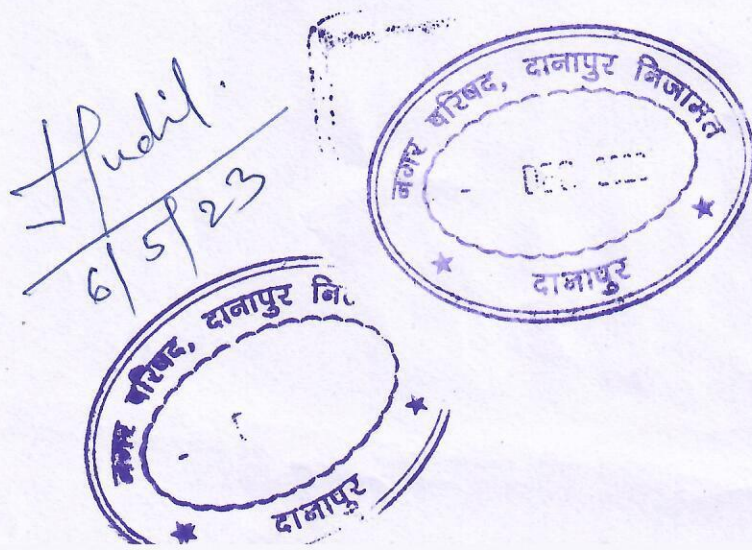 6/5/23
नगर परिषद, दानापुर निजामत
दानापुर
नगर परिषद, दानापुर
दानापुर